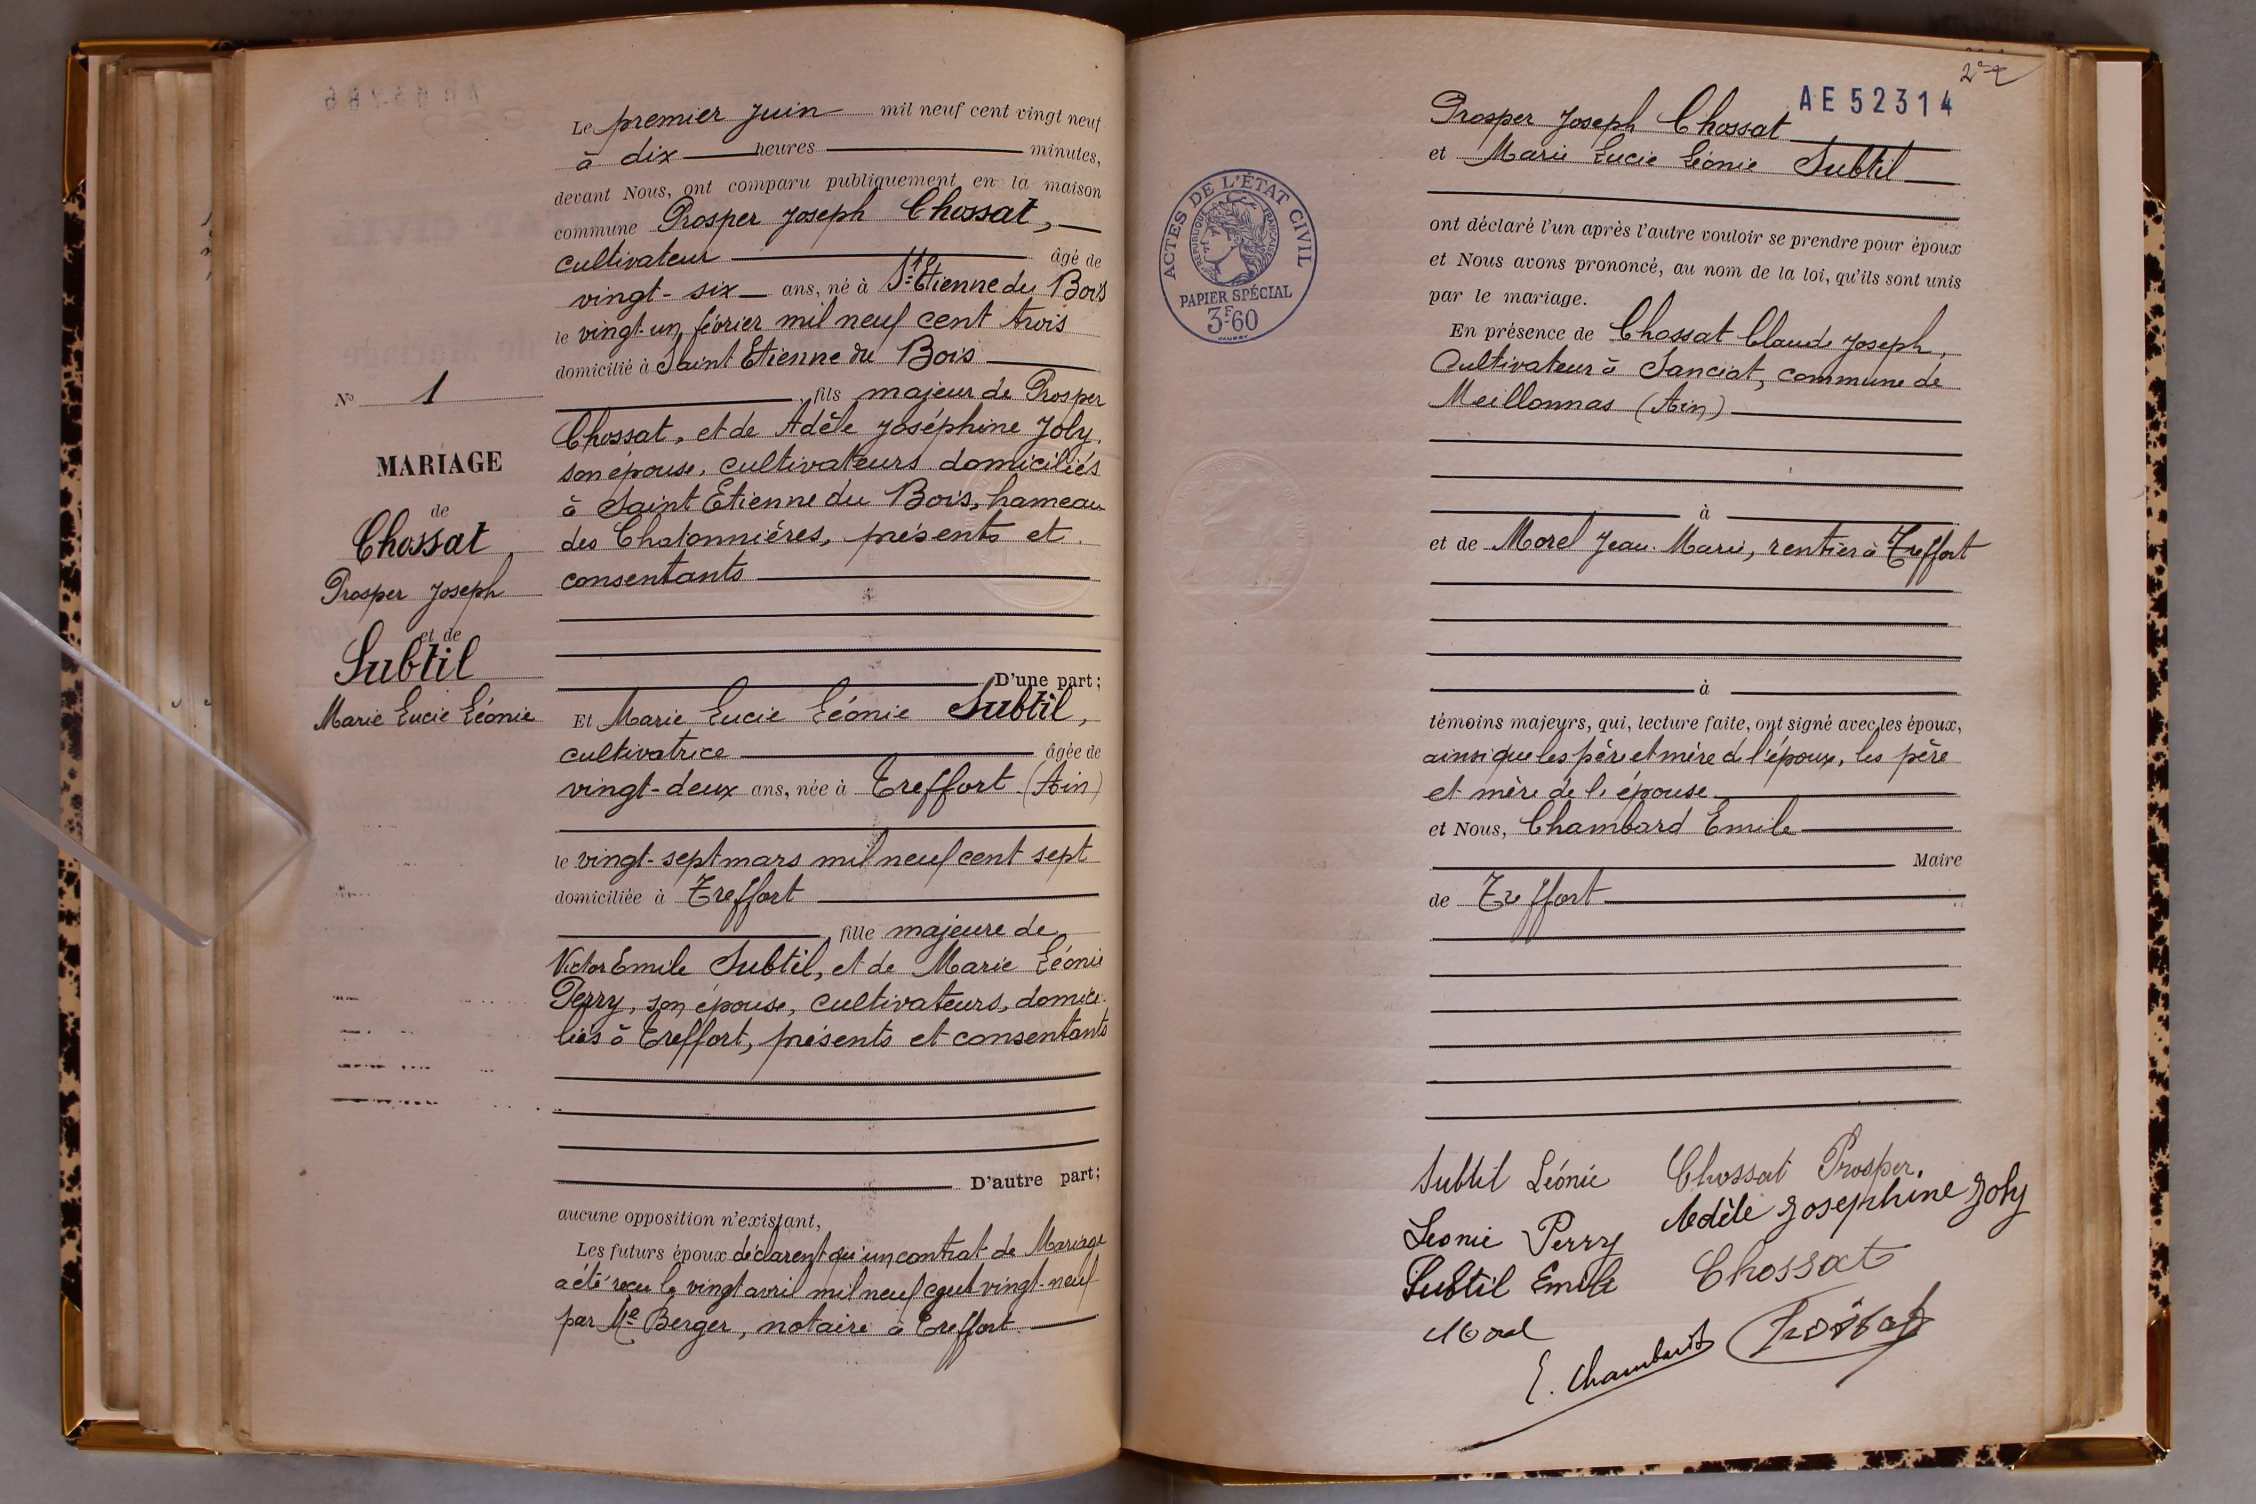 Le premier Juin mil neuf cent vingt neuf
à dix heures minutes,
devant Nous, ont comparu publiquement en la maison
commune Prosper Joseph Chossat,
cultivateur âgé de
vingt-six ans, né à St Etienne du Bois
le vingt-un février mil neuf cent trois
domicilié à Saint Etienne du Bois
fils majeur de Prosper
Chossat, et de Adèle Joséphine Joly,
son épouse, cultivateurs domiciliés
à Saint Etienne du Bois, hameau
des Chatonnières, présents et
consentants
D'une part;
Et Marie Lucie Léonie Subtil,
cultivatrice âgée de
vingt-deux ans, née à Treffort (Ain)
le vingt-sept mars mil neuf cent sept
domiciliée à Treffort
fille majeure de
Victor Emile Subtil, et de Marie Léonie
Perry, son épouse, cultivateurs, domici-
liés à Treffort, présents et consentants
D'autre part;
aucune opposition n'existant,
Les futurs époux déclarent qu'un contrat de Mariage
a été reçu le vingt avril mil neuf cent vingt-neuf
par Me Berger, notaire à Treffort.
No 1
MARIAGE
de
Chossat
Prosper Joseph
et de
Subtil
Marie Lucie Léonie
AE 52314
Prosper Joseph Chossat
et Marie Lucie Léonie Subtil
ont déclaré l'un après l'autre vouloir se prendre pour époux
et Nous avons prononcé, au nom de la loi, qu'ils sont unis
par le mariage.
En présence de Chossat Claude Joseph,
Cultivateur à Sanciat, commune de
Meillonnas (Ain)
à
et de Morel Jean-Marie, rentier à Treffort
à
témoins majeurs, qui, lecture faite, ont signé avec les époux,
ainsi que les père et mère de l'époux, les père
et mère de l'épouse
et Nous, Chambard Emile
Maire
de Treffort
ACTES DE L'ÉTAT CIVIL
RÉPUBLIQUE FRANÇAISE
PAPIER SPÉCIAL
3F60
Subtil Léonie Chossat Prosper.
Adèle Josephine Joly
Leonie Perry
Chossat
Subtil Emile
Morel
E. Chambard